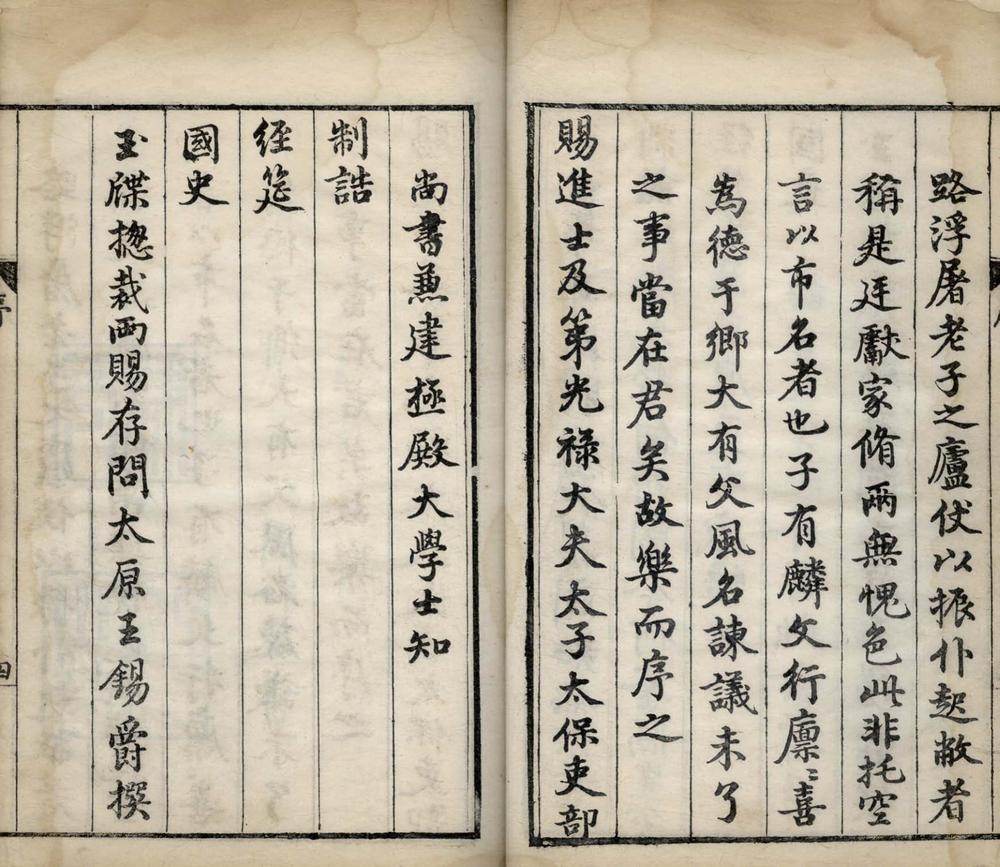 路浮屠老子之廬伏以振仆起敝者
稱是廷獻家脩兩無愧色此非托空
言以市名者也子有麟文行廪〻喜
為德于鄉大有父風名諫議未了
之事當在君矣故樂而序之
賜進士及第光祿大夫太子太保吏部
尚書蒹建極殿大學士知
制誥
經筵
國史
玉牒捴裁兩賜存問太原王錫爵撰
序
四